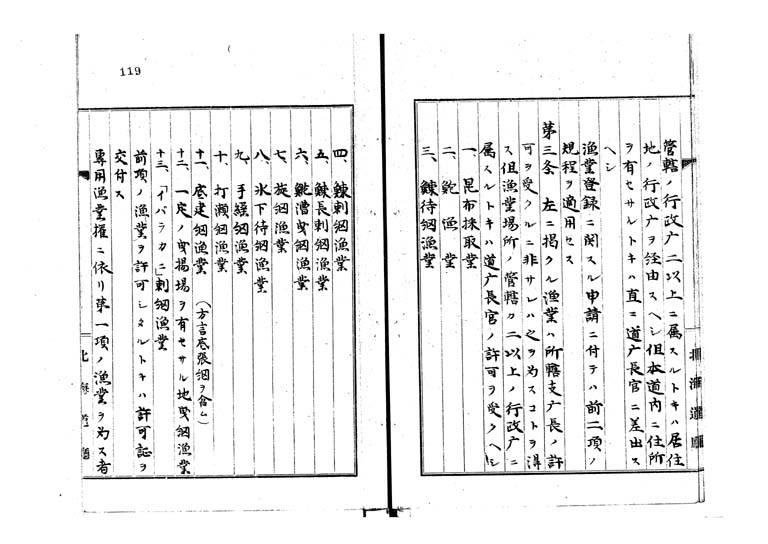 管轄ノ行政庁二以上ニ属スルトキハ居住
地ノ行政庁ヲ経由スヘシ但本道内ニ住所
ヲ有セサルトキハ直ニ道庁長官ニ差出ス
ヘシ
漁業登録ニ関スル申請ニ付テハ前二項ノ
規程ヲ適用セス
第三条 左ニ掲クル漁業ハ所轄支庁長ノ許
可ヲ受クルニ非サレハ之ヲ為スコトヲ得
ス但漁業場所ノ管轄カ二以上ノ行政庁ニ
属スルトキハ道庁長官ノ許可ヲ受クヘシ
一、昆布採取業
二、鉈漁業
三、鰊待網漁業
北海道庁
119
四、鰊刺網漁業
五、鰊長刺網漁業
六、鱿漕曳網漁業
七、旋網漁業
八、氷下待網漁業
九、手繰網漁業
十、打瀬網漁業
十一、底建網漁業(方言底張網ヲ含ム)
十二、一定ノ曳揚場ヲ有セサル地曳網漁業
十三、「イバラカニ」刺網漁業
前項ノ漁業ヲ許可シタルトキハ許可証ヲ
交付ス
専用漁業権ニ依リ第一項ノ漁業ヲ為ス者
北海道庁